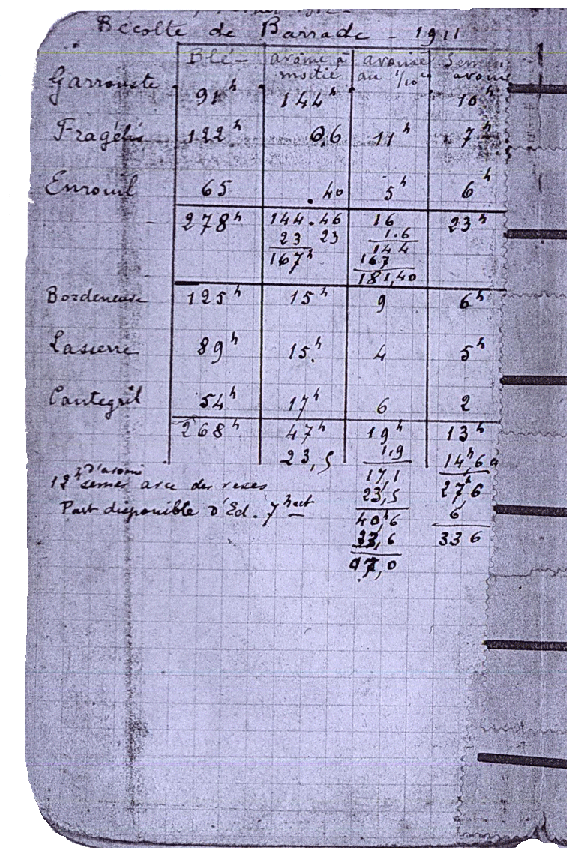 Récolte de Barrade - 1911
Blé - avoine à moitié avoine au 1/10e Semence avoine
Garrouste 91h 144h 10h
Fragélis 122h 0,6 11h 7h
Enrouil 65 .40 5h 6h
278h 144.46 16 23h
23 23 1.6
167h 144
167
181,40
Bordeneuve 125h 15h 9 6h
Lasserre 89h 15h. 4 5h
Cantegril 54h 17h 6 2
268h 47h 19h 13h
23,5 1,9 14h,60
17,1 27,6
23,5 6
40,6 33 6
33,6
7,0
12h d'avoine semer avec des vesces
Part disponible d'Ed. 7 hect